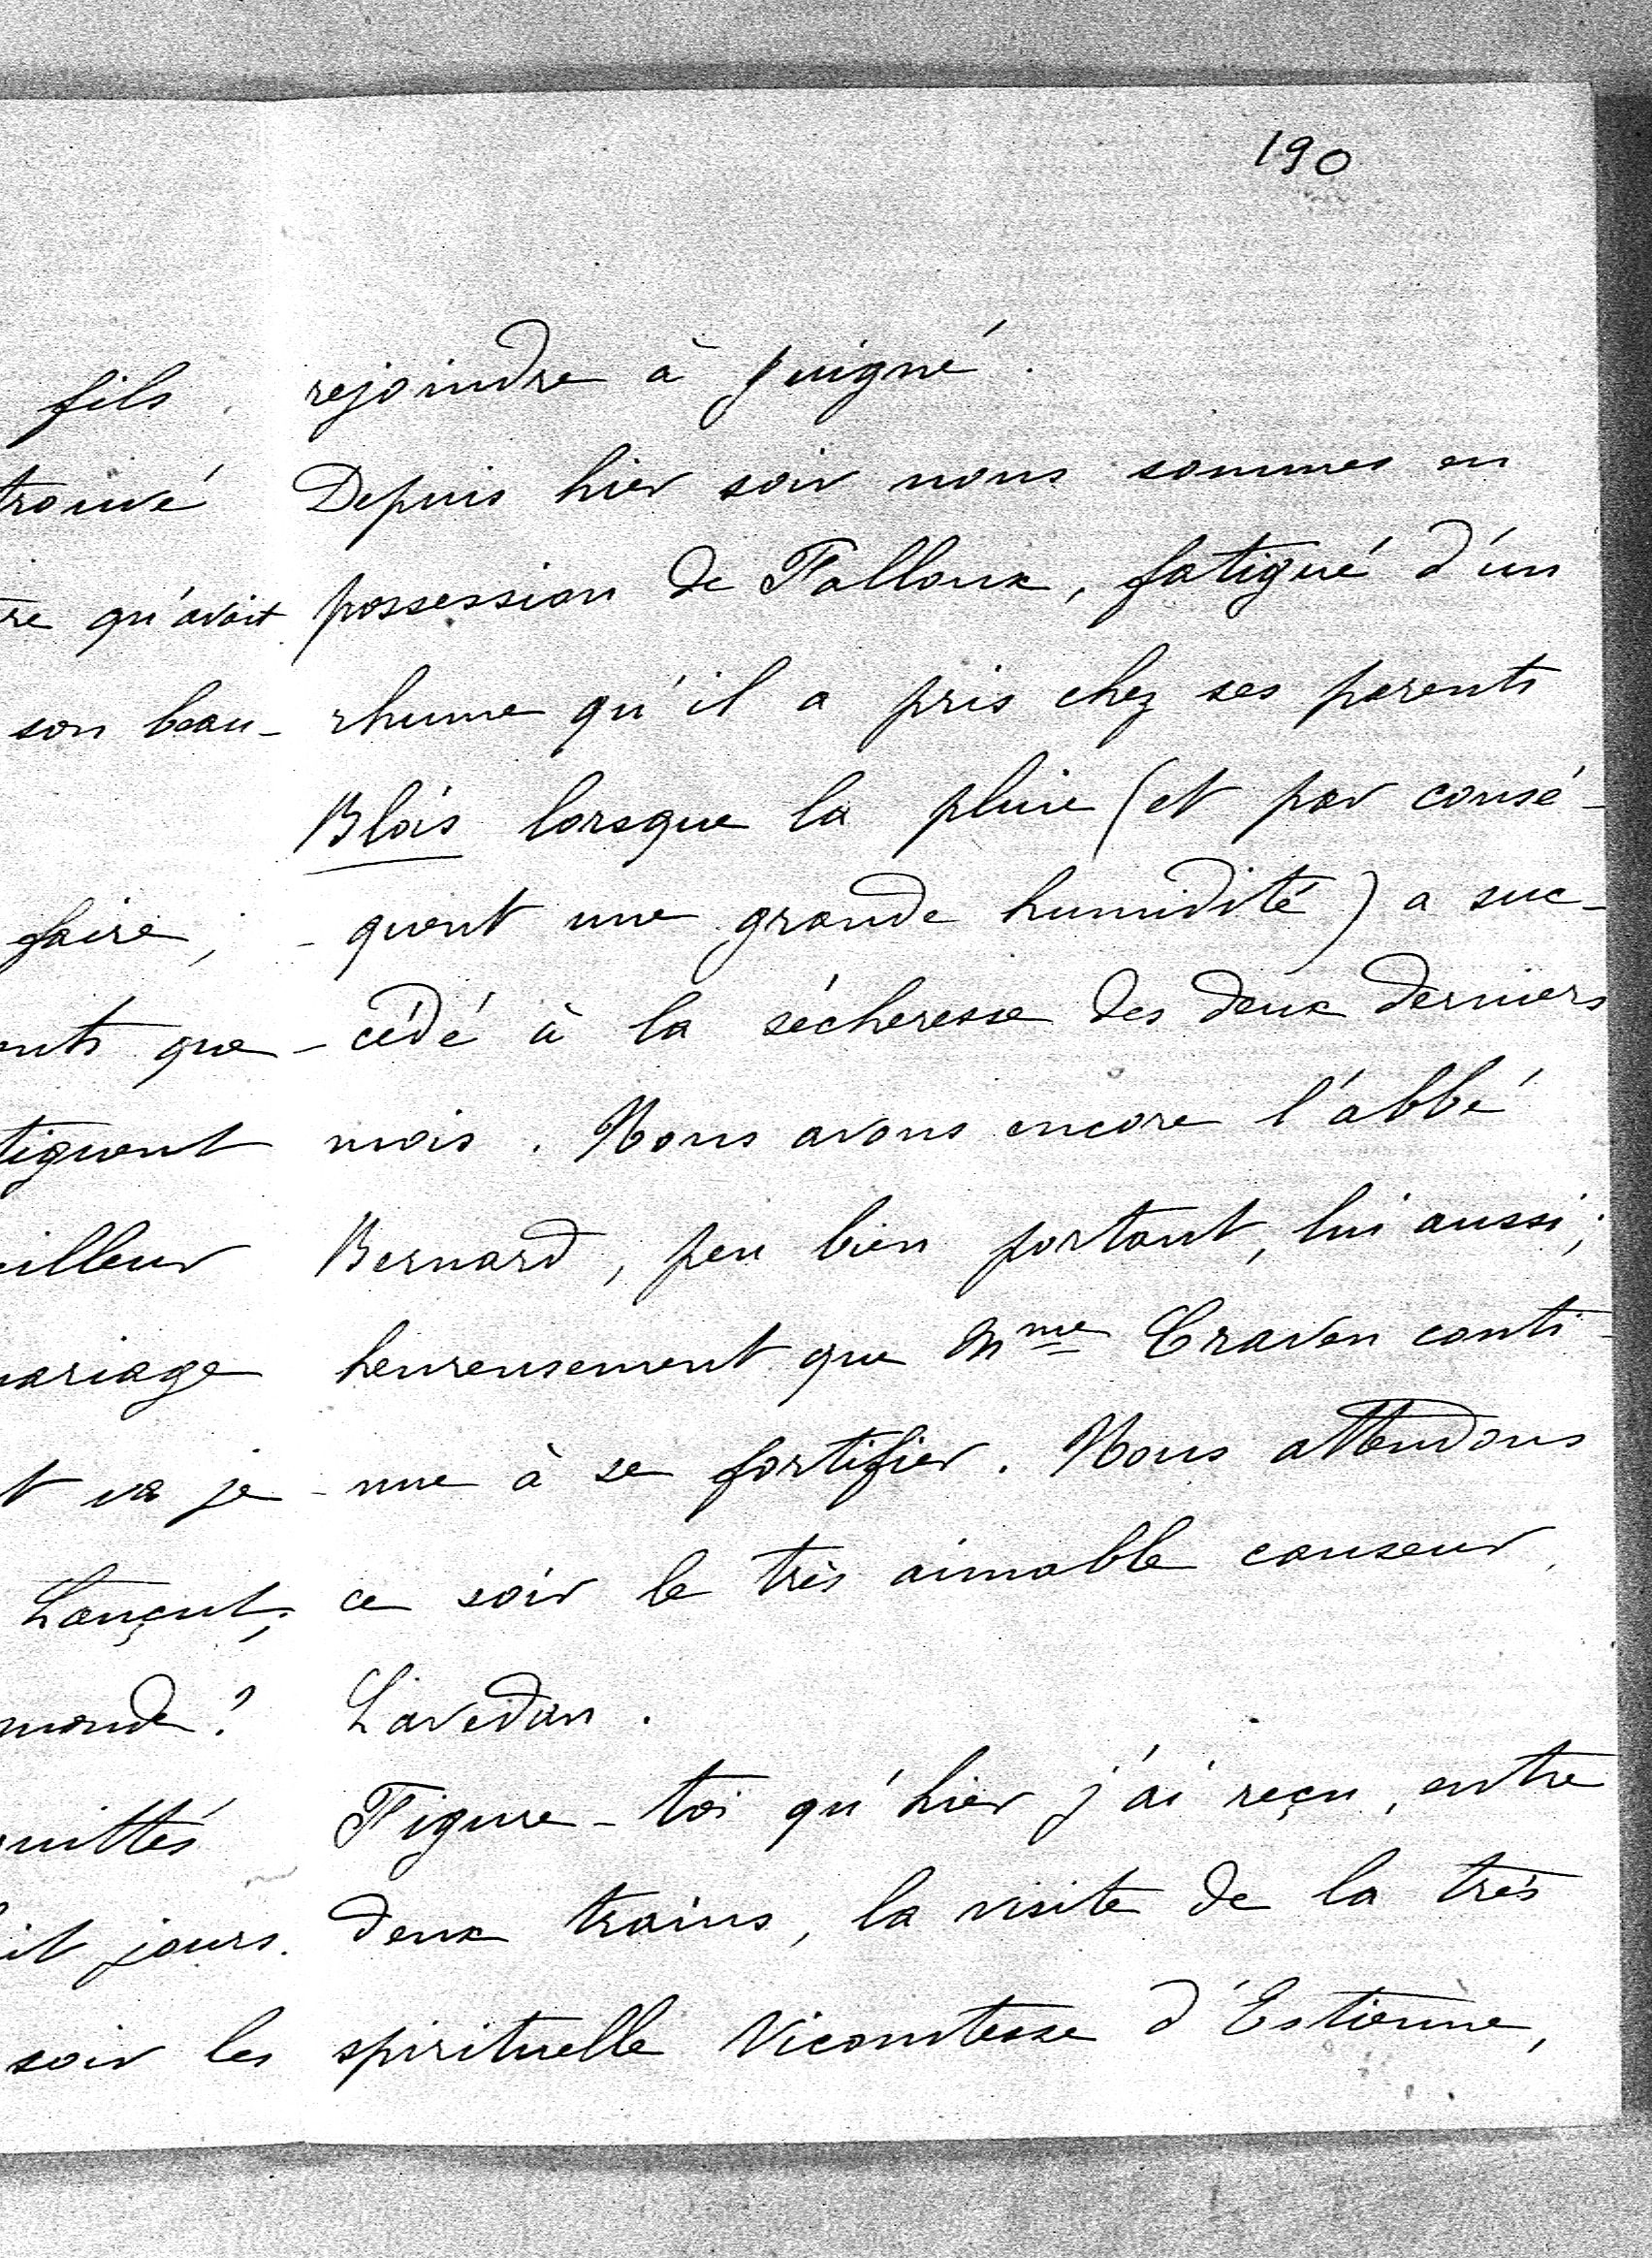 190
rejoindre à Juigné.
Depuis hier soir nous sommes en
possession de Falloux, fatigué d'un
rhume qu'il a pris chez ses parents
Blois lorsque la pluie (et par consé-
-quent une grande humidité) a suc-
-cédé à la sécheresse des deux derniers
mois. Nous avons encore l'abbé
Bernard, peu bien portant, lui aussi;
heureusement que Mme Craven conti-
-nue à se fortifier. Nous attendons
ce soir le très aimable causeur,
Lavedan.
Figure-toi qu'hier j'ai reçu, entre
deux trains, la visite de la très
spirituelle Vicomtesse d'Estienne,
fils
trouvé
re qu'avait
son beau-
faire,
ents que
tiguent
eilleur
ariage
t va je
Lançut;
monde?
uittés
it jours.
soir les